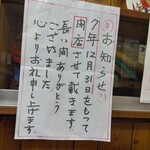 お知らせ
7年12月31日をもって
閉店させて戴きます。
長い間ありがとう
ございました。
心よりお礼申し上げます。